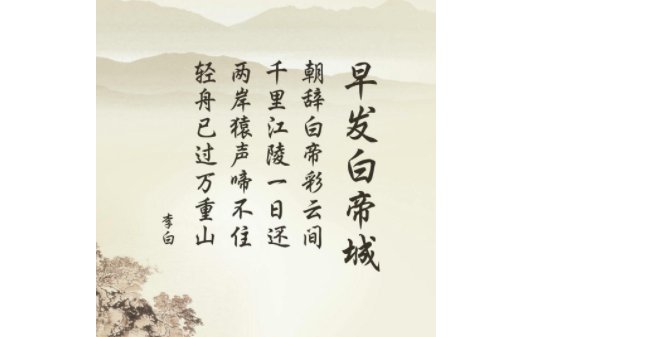 早发白帝城
朝辞白帝彩云间
千里江陵一日还
两岸猿声啼不住
轻舟已过万重山
李白